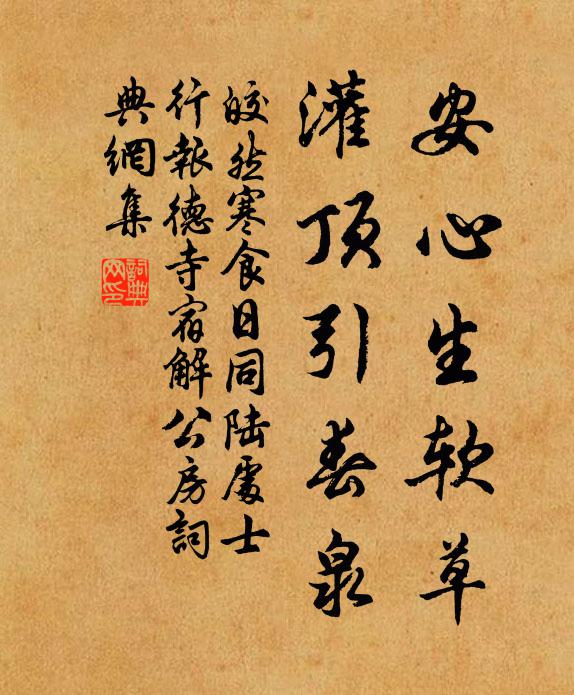 安心生软草
灌顶引春泉
皎然寒食日同陆處士
行報德寺宿解公房詞
典網集
詞典
网印